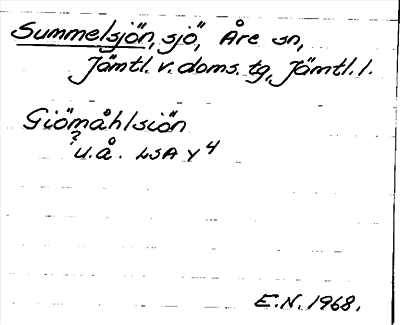 Summelsjön, sjö, Åre sn,
Jämtl. v. doms. tg, Jämtl. l.
Giömåhlsiön
?
u. å. LSA Y 4
E.N. 1968.